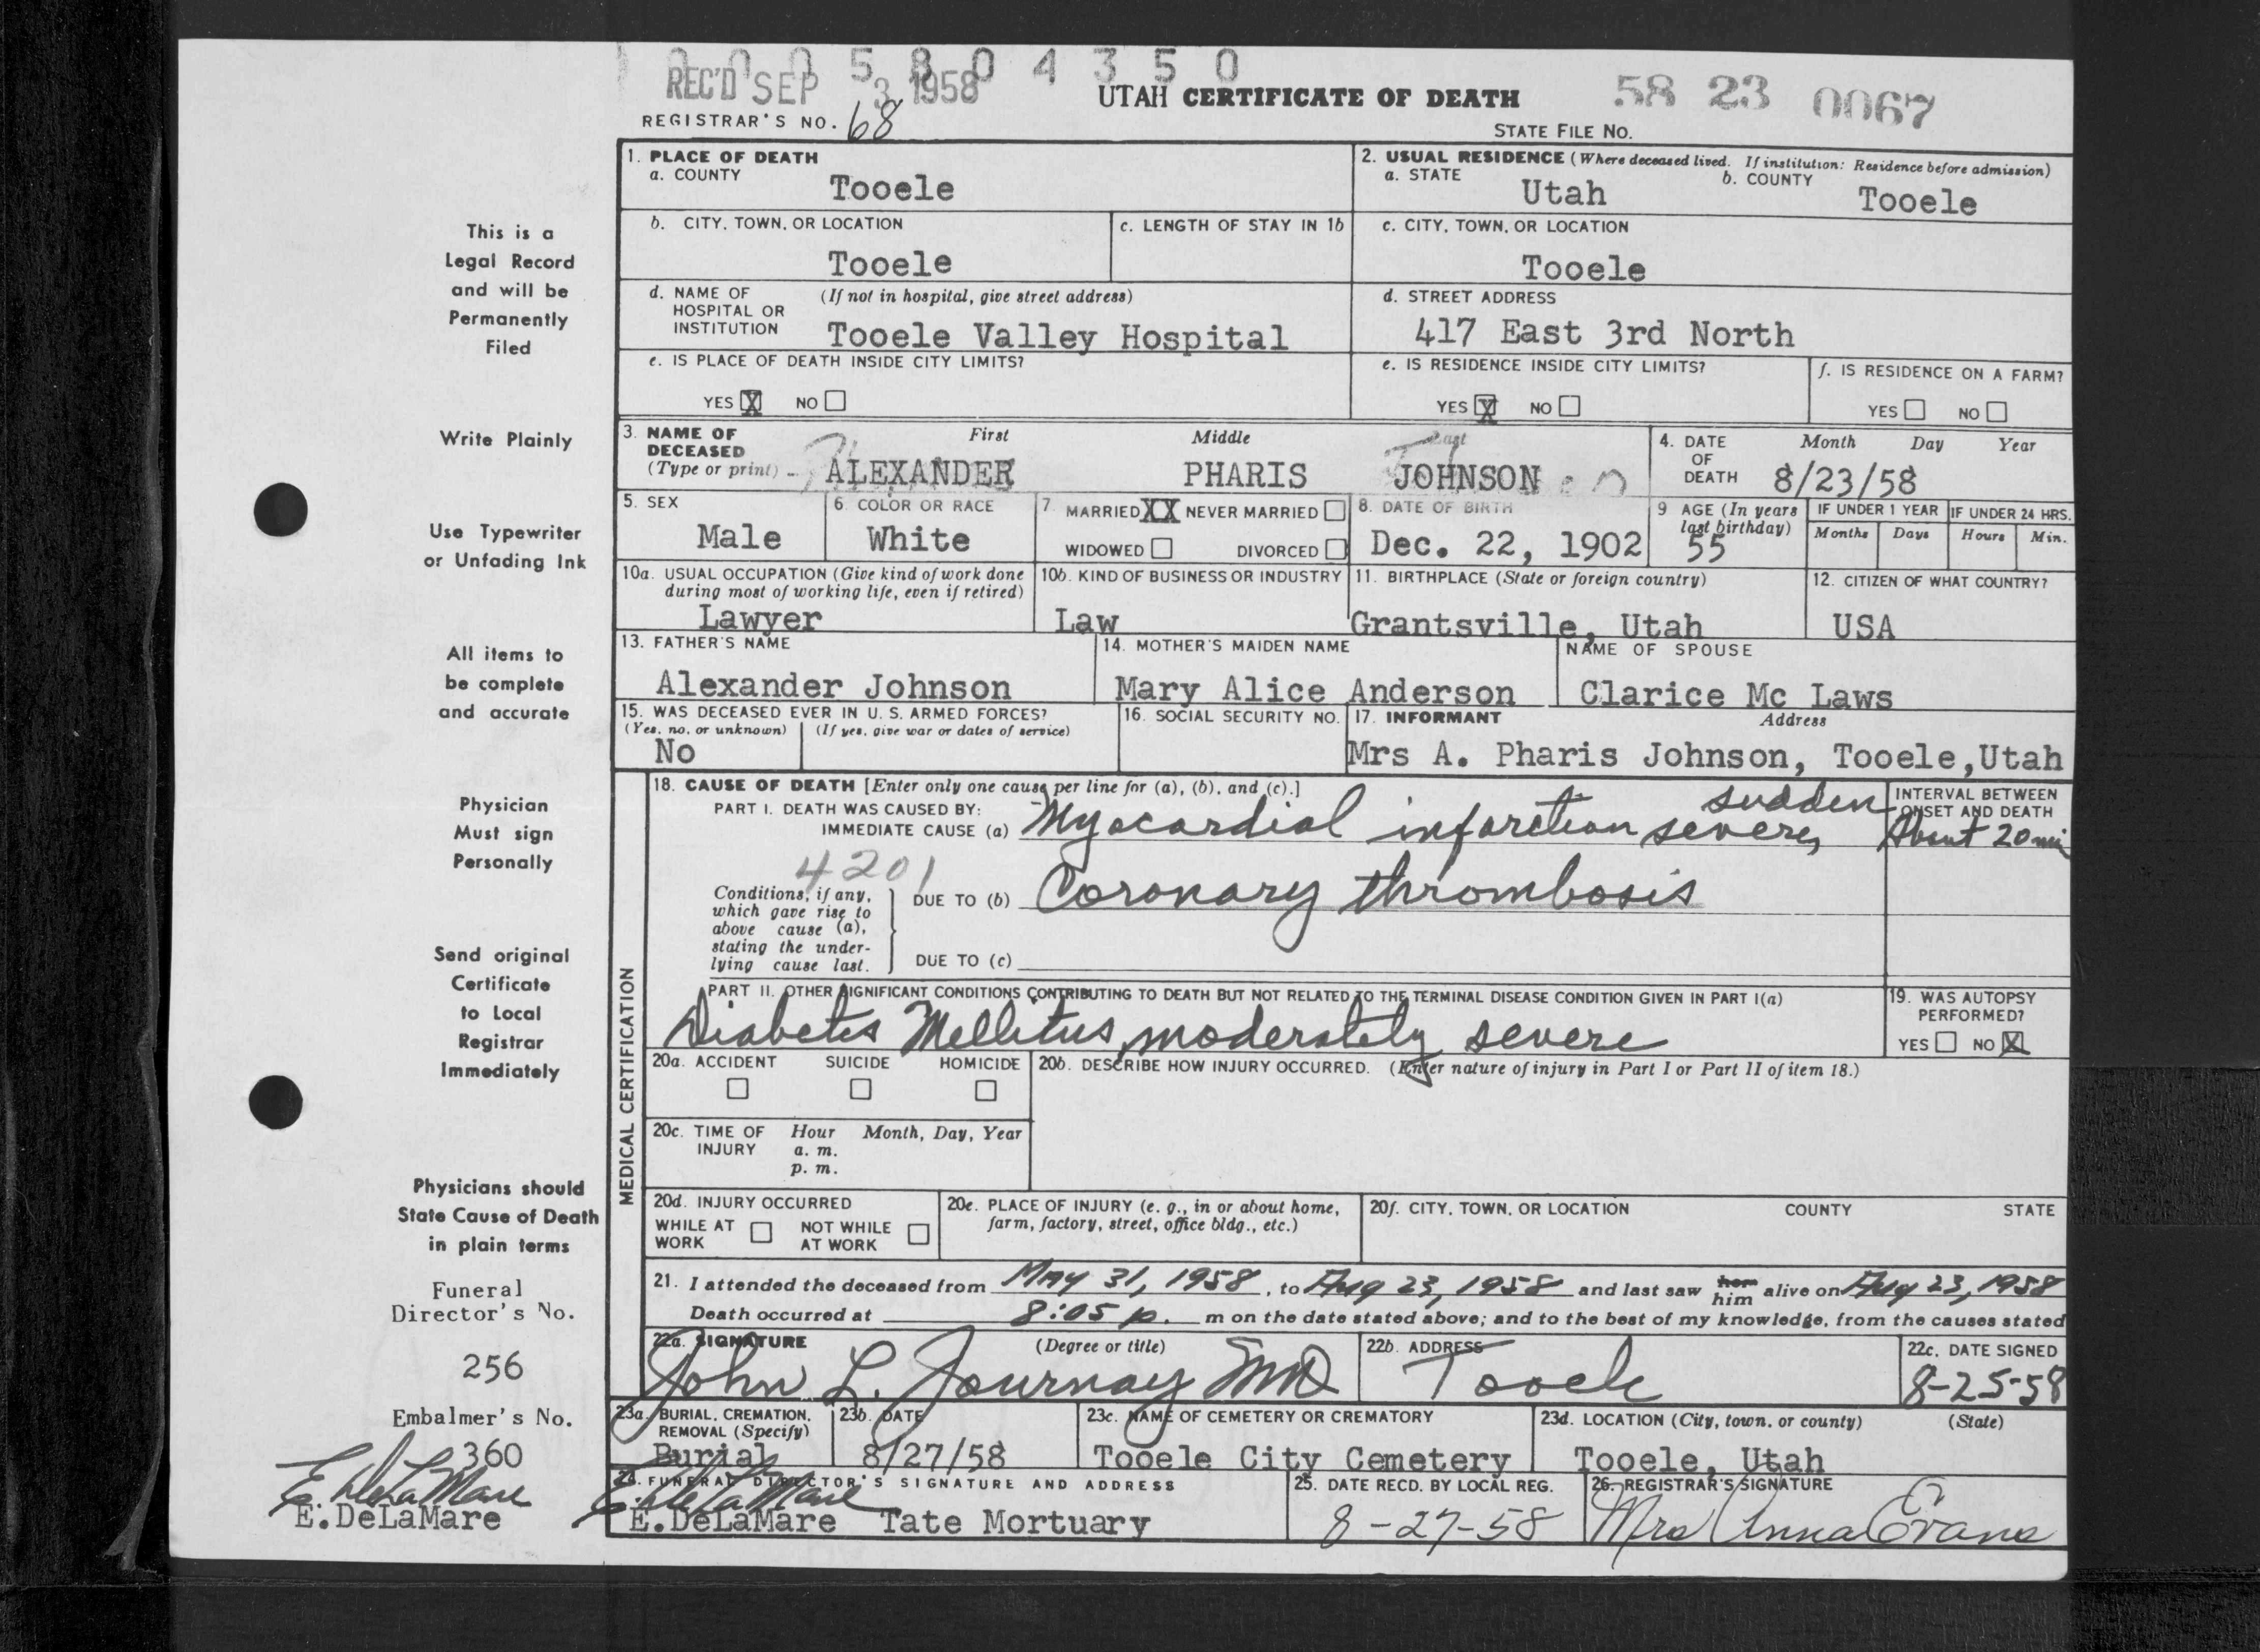 005804350
REC'D SEP 3 1958
UTAH CERTIFICATE OF DEATH
58 23 0067
REGISTRAR'S NO. 68
STATE FILE No.
This is a
Legal Record
and will be
Permanently
Filed
Write Plainly
Use Typewriter
or Unfading Ink
All items to
be complete
and accurate
Physician
Must sign
Personally
Send original
Certificate
to Local
Registrar
Immediately
Physicians should
State Cause of Death
in plain terms
Funeral
Director's No.
256
Embalmer's No.
360
E. DeLaMare
E.DeLaMare
1. PLACE OF DEATH
a. COUNTY
Tooele
2. USUAL RESIDENCE (Where deceased lived. If institution: Residence before admission)
a. STATE
Utah
b. COUNTY
Tooele
b. CITY, TOWN, OR LOCATION
Tooele
c. LENGTH OF STAY IN 1b
c. CITY, TOWN, OR LOCATION
Tooele
d. NAME OF (If not in hospital, give street address)
HOSPITAL OR
INSTITUTION
Tooele Valley Hospital
d. STREET ADDRESS
417 East 3rd North
e. IS PLACE OF DEATH INSIDE CITY LIMITS?
YES X NO
e. IS RESIDENCE INSIDE CITY LIMITS?
YES X NO
f. IS RESIDENCE ON A FARM?
YES NO
3. NAME OF
DECEASED
(Type or print)
First Middle Last
ALEXANDER PHARIS JOHNSON
4. DATE
OF
DEATH
Month Day Year
8/23/58
5. SEX
Male
6. COLOR OR RACE
White
7. MARRIED XX NEVER MARRIED
WIDOWED DIVORCED
8. DATE OF BIRTH
Dec. 22, 1902
9 AGE (In years
last birthday)
55
IF UNDER 1 YEAR
Months Days
IF UNDER 24 HRS.
Hours Min.
10a. USUAL OCCUPATION (Give kind of work done
during most of working life, even if retired)
Lawyer
10b. KIND OF BUSINESS OR INDUSTRY
Law
11. BIRTHPLACE (State or foreign country)
Grantsville, Utah
12. CITIZEN OF WHAT COUNTRY?
USA
13. FATHER'S NAME
Alexander Johnson
14. MOTHER'S MAIDEN NAME
Mary Alice Anderson
NAME OF SPOUSE
Clarice Mc Laws
15. WAS DECEASED EVER IN U. S. ARMED FORCES?
(Yes, no, or unknown) (If yes, give war or dates of service)
No
16. SOCIAL SECURITY NO.
17. INFORMANT Address
Mrs A. Pharis Johnson, Tooele,Utah
MEDICAL CERTIFICATION
18. CAUSE OF DEATH [Enter only one cause per line for (a), (b), and (c).]
PART I. DEATH WAS CAUSED BY:
IMMEDIATE CAUSE (a) Myocardial infarction severe, sudden
INTERVAL BETWEEN
ONSET AND DEATH
About 20 min
4201
Conditions, if any,
which gave rise to
above cause (a),
stating the under-
lying cause last.
DUE TO (b) Coronary thrombosis
DUE TO (c)
PART II. OTHER SIGNIFICANT CONDITIONS CONTRIBUTING TO DEATH BUT NOT RELATED TO THE TERMINAL DISEASE CONDITION GIVEN IN PART I(a)
Diabetes Mellitus, moderately severe
19. WAS AUTOPSY
PERFORMED?
YES NO X
20a. ACCIDENT SUICIDE HOMICIDE
20b. DESCRIBE HOW INJURY OCCURRED. (Enter nature of injury in Part I or Part II of item 18.)
20c. TIME OF
INJURY
Hour Month, Day, Year
a. m.
p. m.
20d. INJURY OCCURRED
WHILE AT
WORK
NOT WHILE
AT WORK
20e. PLACE OF INJURY (e. g., in or about home,
farm, factory, street, office bldg., etc.)
20f. CITY, TOWN, OR LOCATION COUNTY STATE
21. I attended the deceased from May 31, 1958, to Aug 23, 1958 and last saw her him alive on Aug 23, 1958
Death occurred at 8:05 p. m on the date stated above; and to the best of my knowledge, from the causes stated
22a. SIGNATURE (Degree or title)
John L. Journay MD
22b. ADDRESS
Tooele
22c. DATE SIGNED
8-25-58
23a. BURIAL, CREMATION,
REMOVAL (Specify)
Burial
23b. DATE
8/27/58
23c. NAME OF CEMETERY OR CREMATORY
Tooele City Cemetery
23d. LOCATION (City, town, or county) (State)
Tooele, Utah
24. FUNERAL DIRECTOR'S SIGNATURE AND ADDRESS
E. DeLaMare
E.DeLaMare Tate Mortuary
25. DATE RECD. BY LOCAL REG.
8-27-58
26. REGISTRAR'S SIGNATURE
Mrs Anna Evans